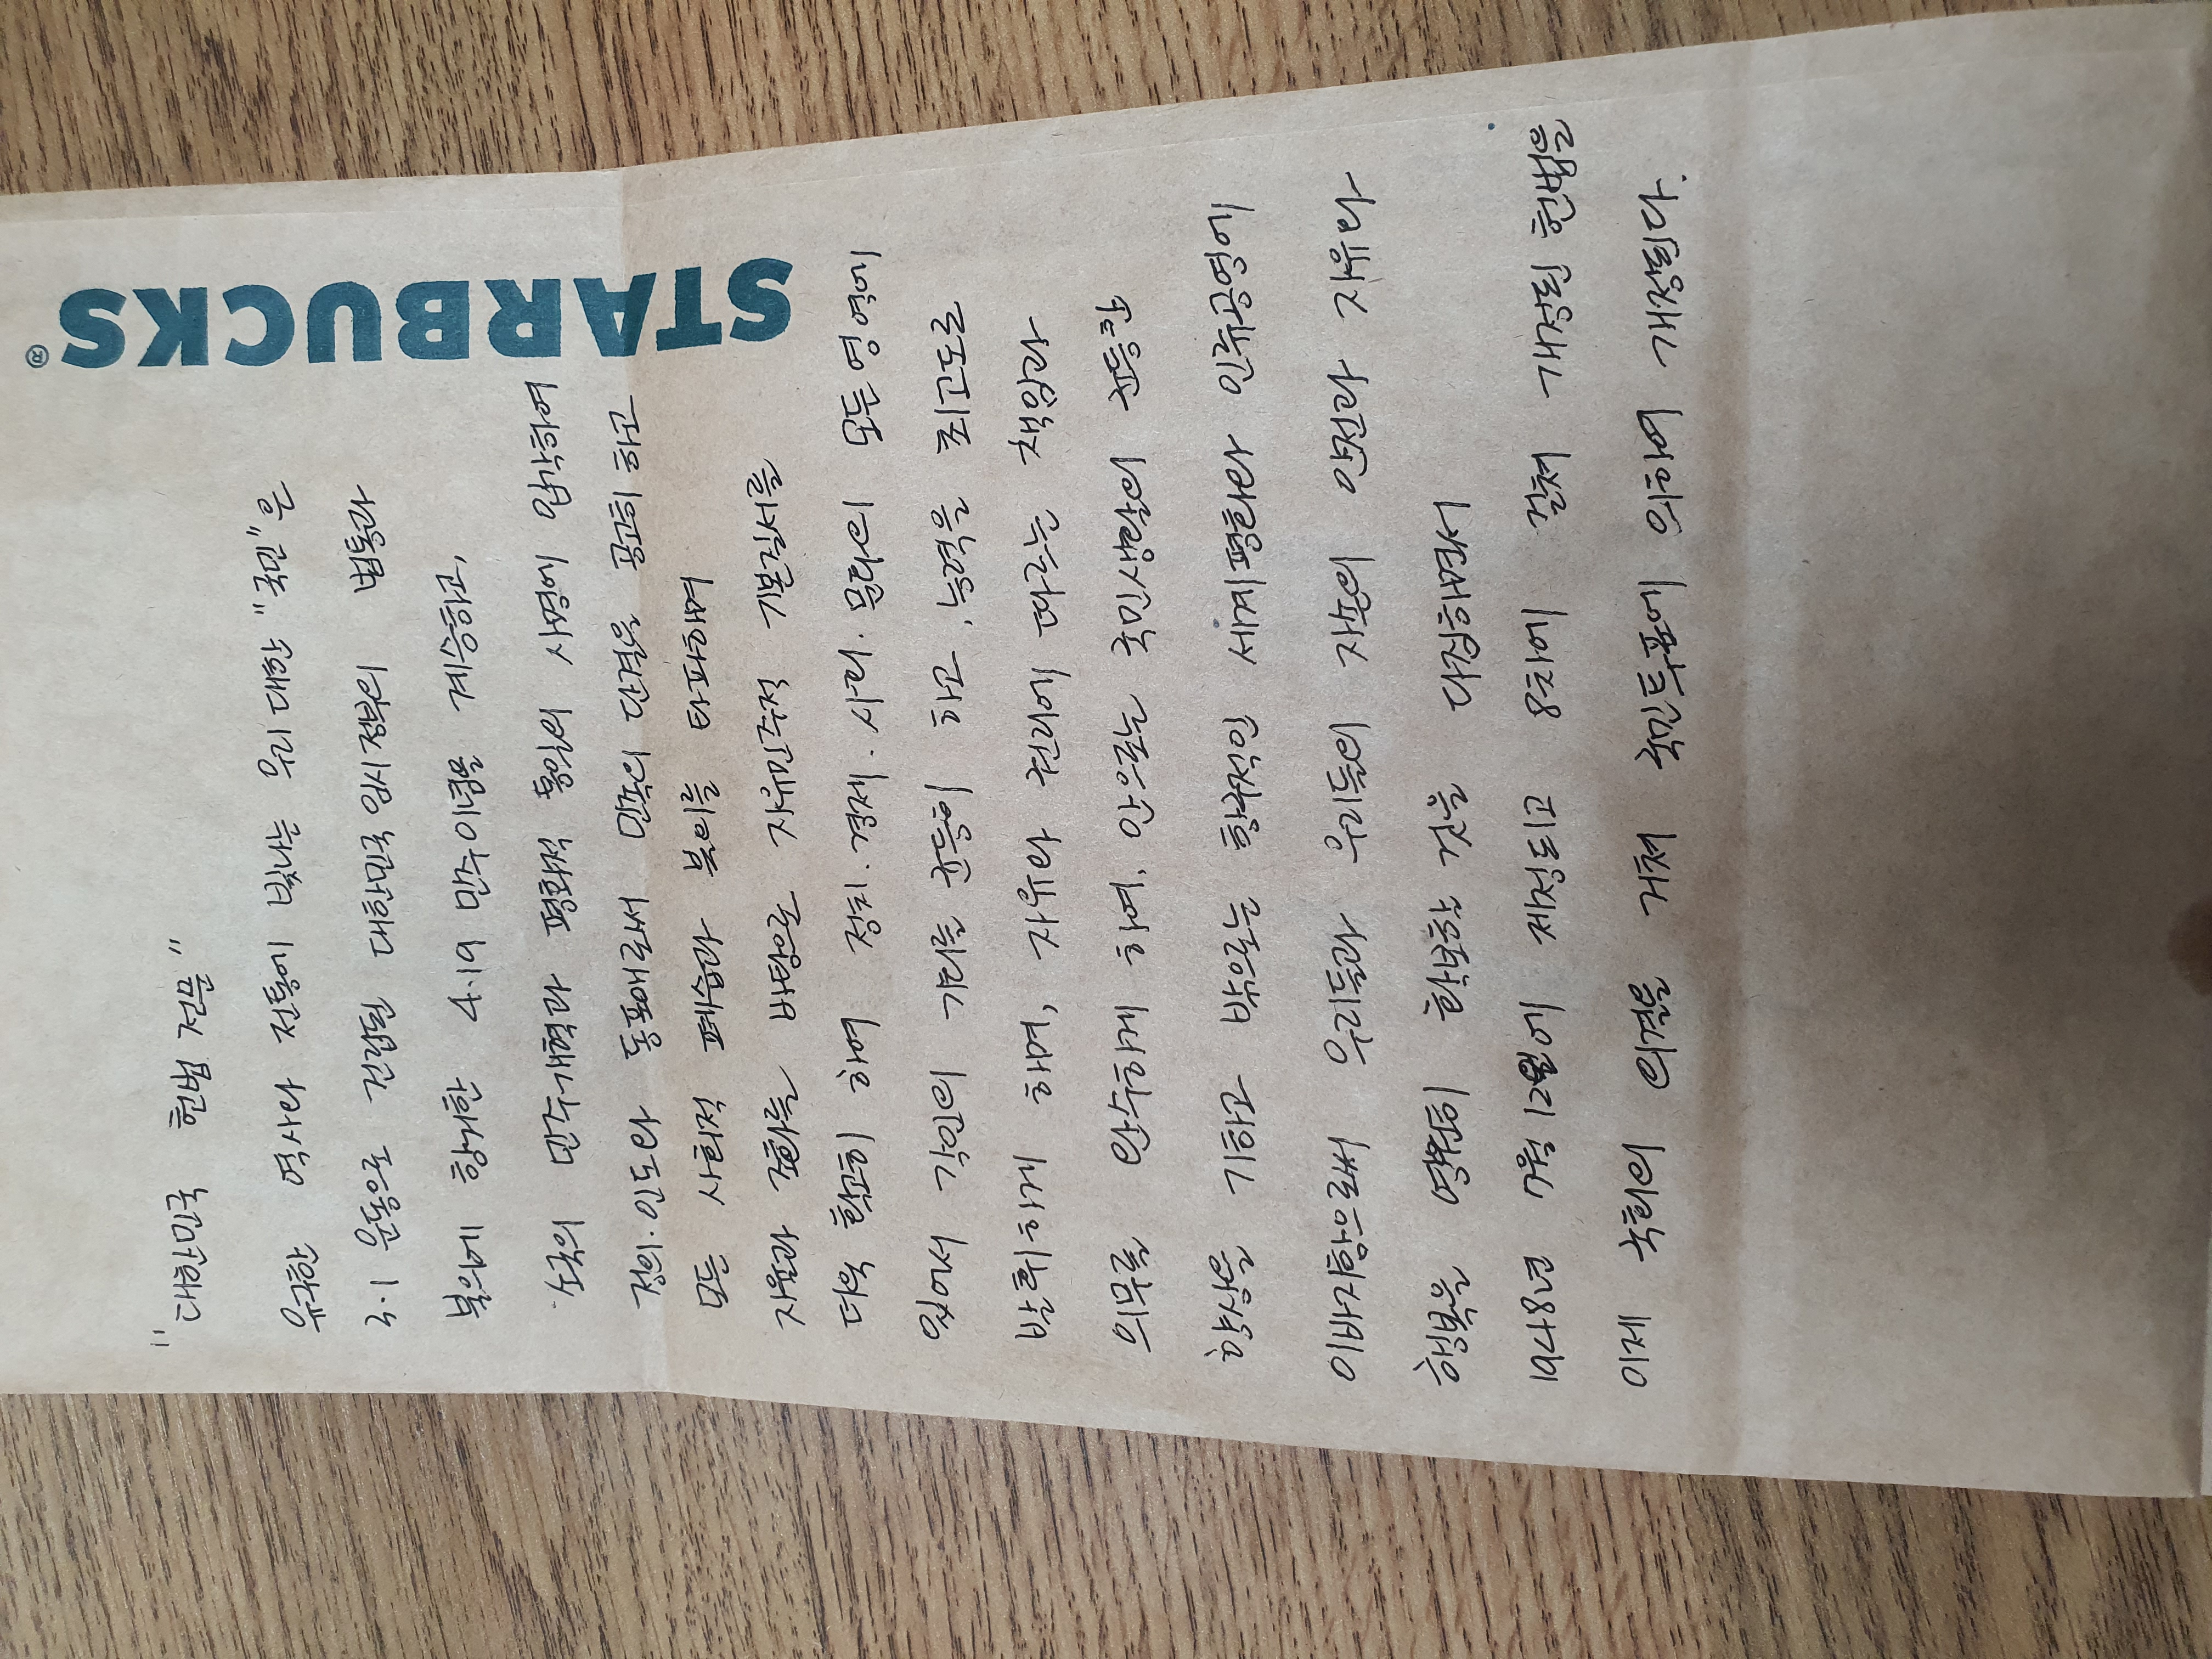 STARBUCKS®
"대한민국 헌법 전문"
유구한 역사와 전통에 빛나는 우리 대한 "국민"은
3·1 운동으로 건립된 대한민국 임시정부의 법통과
불의에 항거한 4·19 민주이념을 계승하고,
조국의 민주개혁과 평화적 통일의 사명에 입각하여
정의·인도와 동포애로써 민족의 단결을 공고히 하고
모든 사회적 폐습과 불의를 타파하며
자율과 조화를 바탕으로 자유민주적 기본질서를
더욱 확고히 하여 정치·경제·사회·문화의 모든 영역에
있어서 각인의 기회를 균등히 하고, 능력을 최고도로
발휘하게 하며, 자유와 권리에 따르는 책임과
의무를 완수하게 하여, 안으로는 국민생활의 균등한
향상을 기하고 밖으로는 항구적인 세계평화와 인류공영에
이바지함으로써 우리들과 우리들의 자손의 안전과 자유와
행복을 영원히 확보할 것을 다짐하면서
1948년 7월 12일에 제정되고 8차에 걸쳐 개정된 헌법을
이제 국회의 의결을 거쳐 국민투표에 의하여 개정된다.